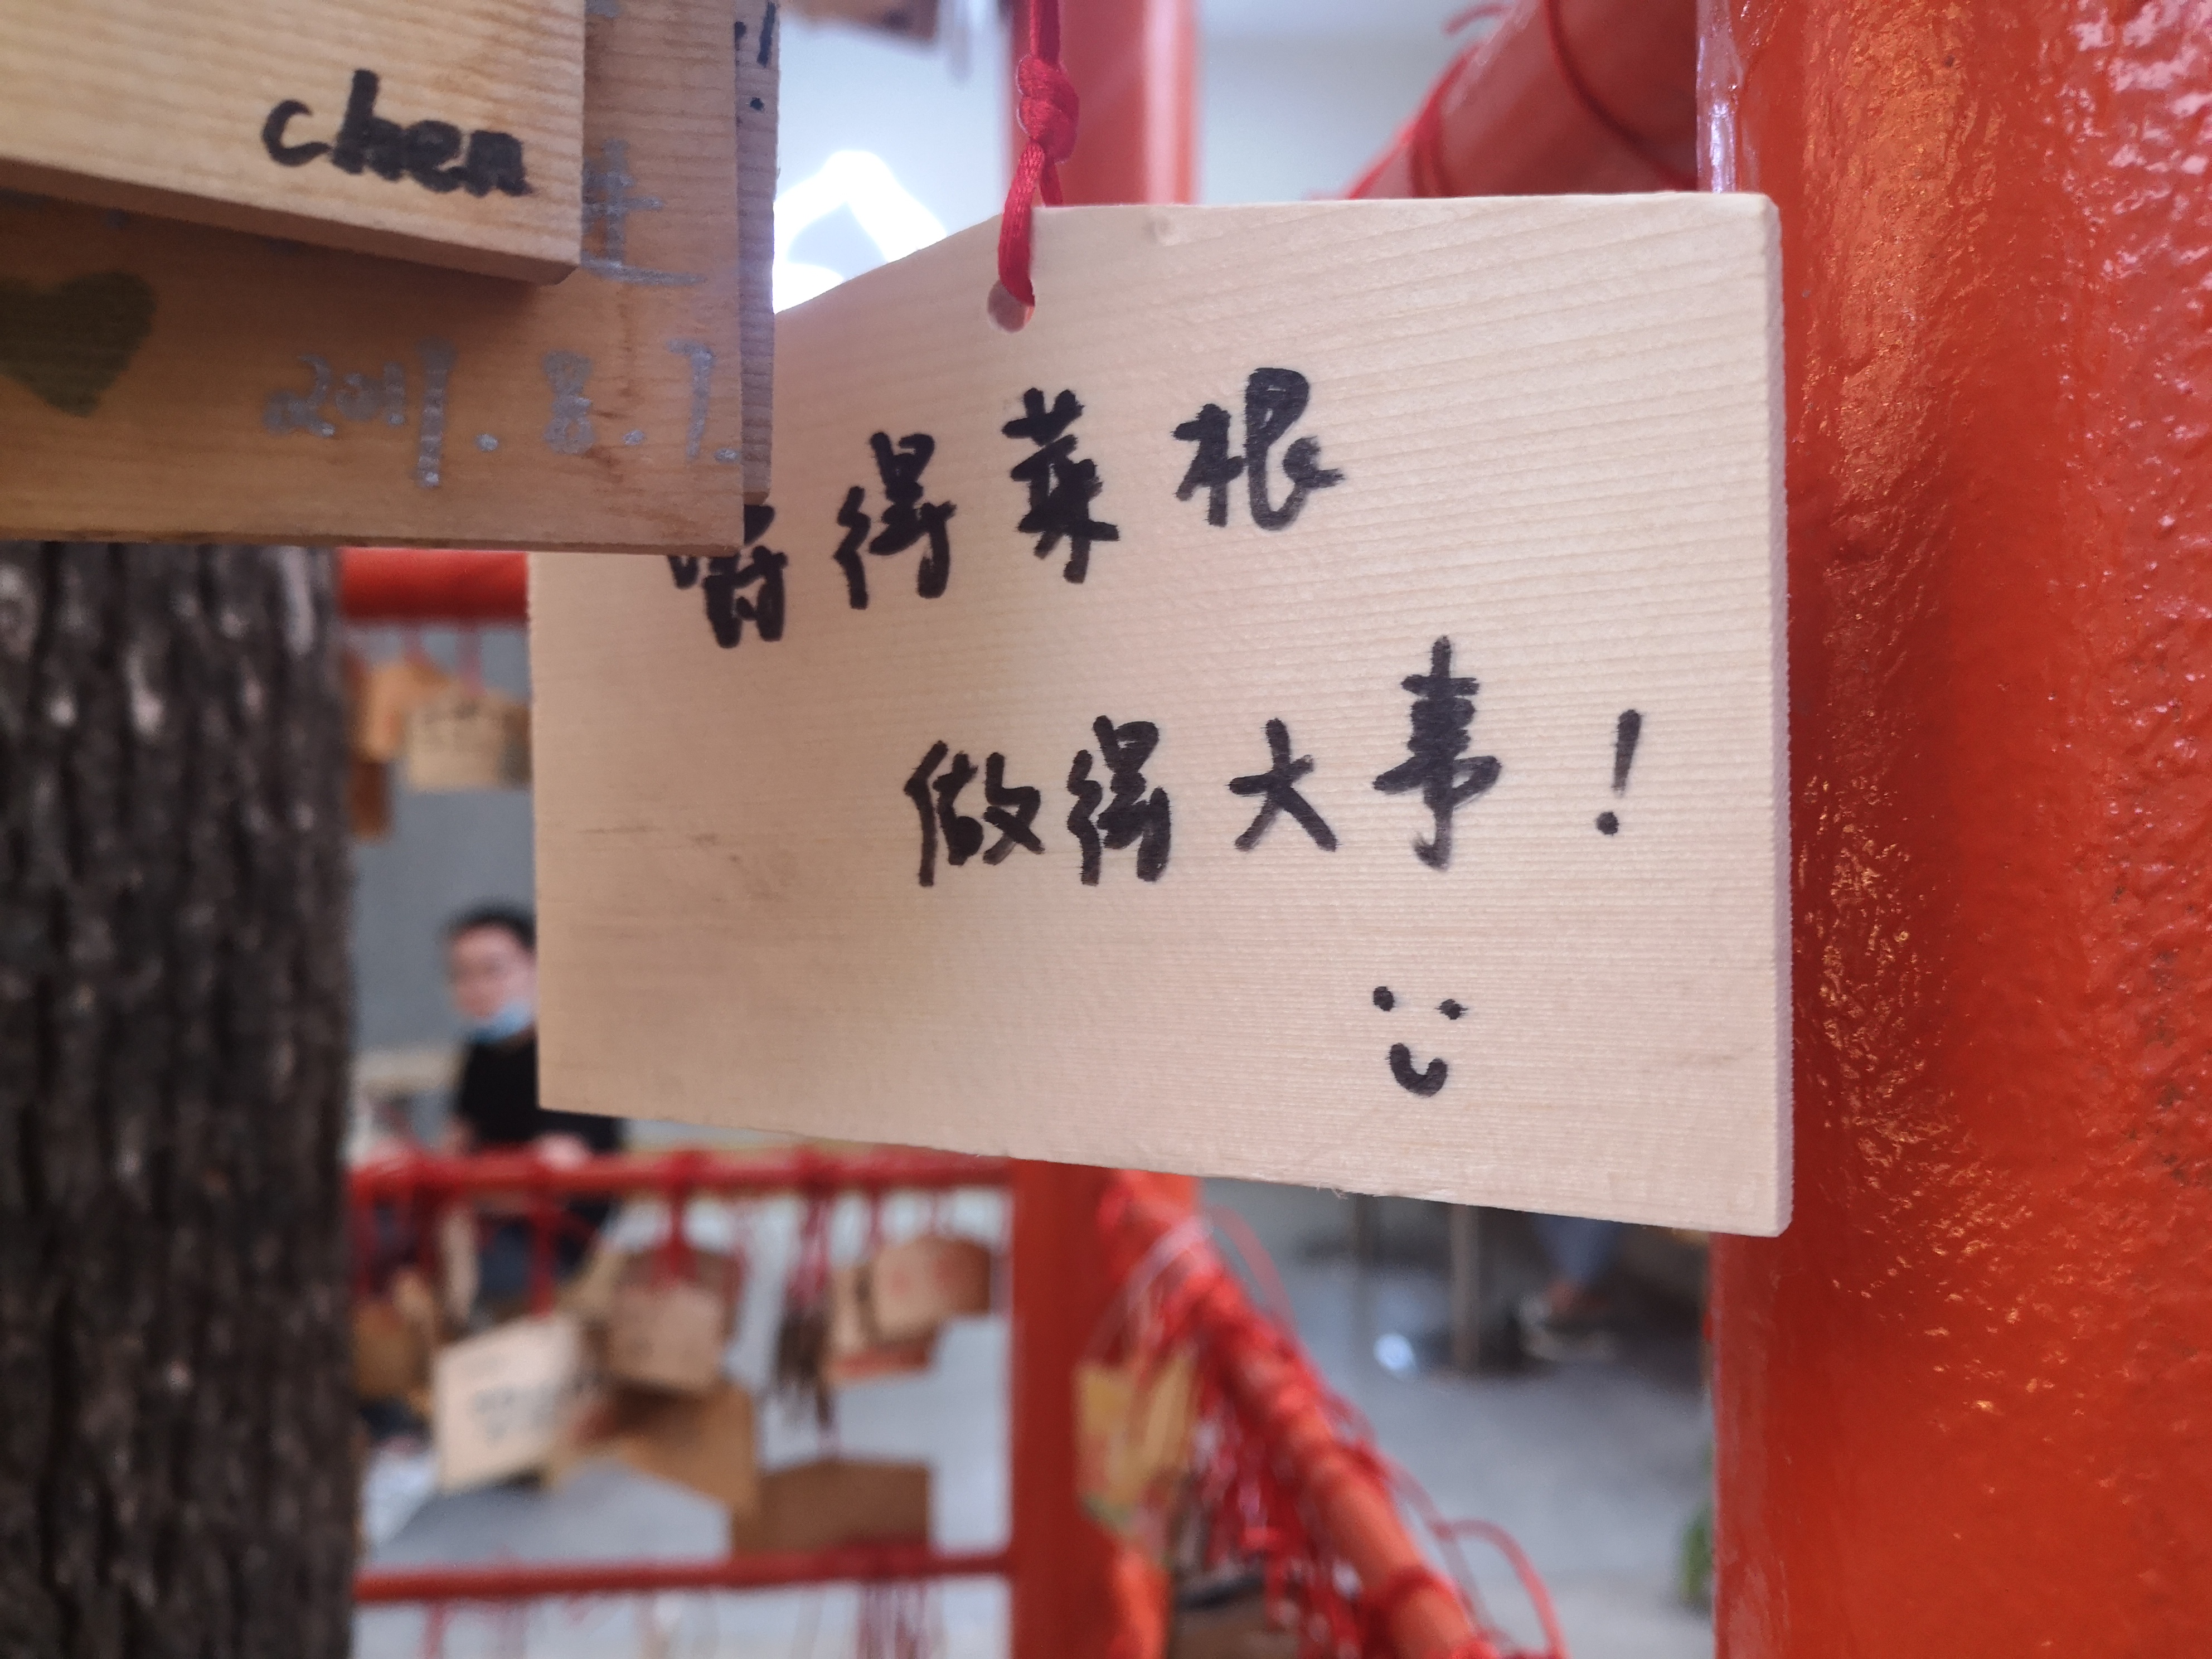 chen
2011.8.7.
嚼得菜根
做得大事！